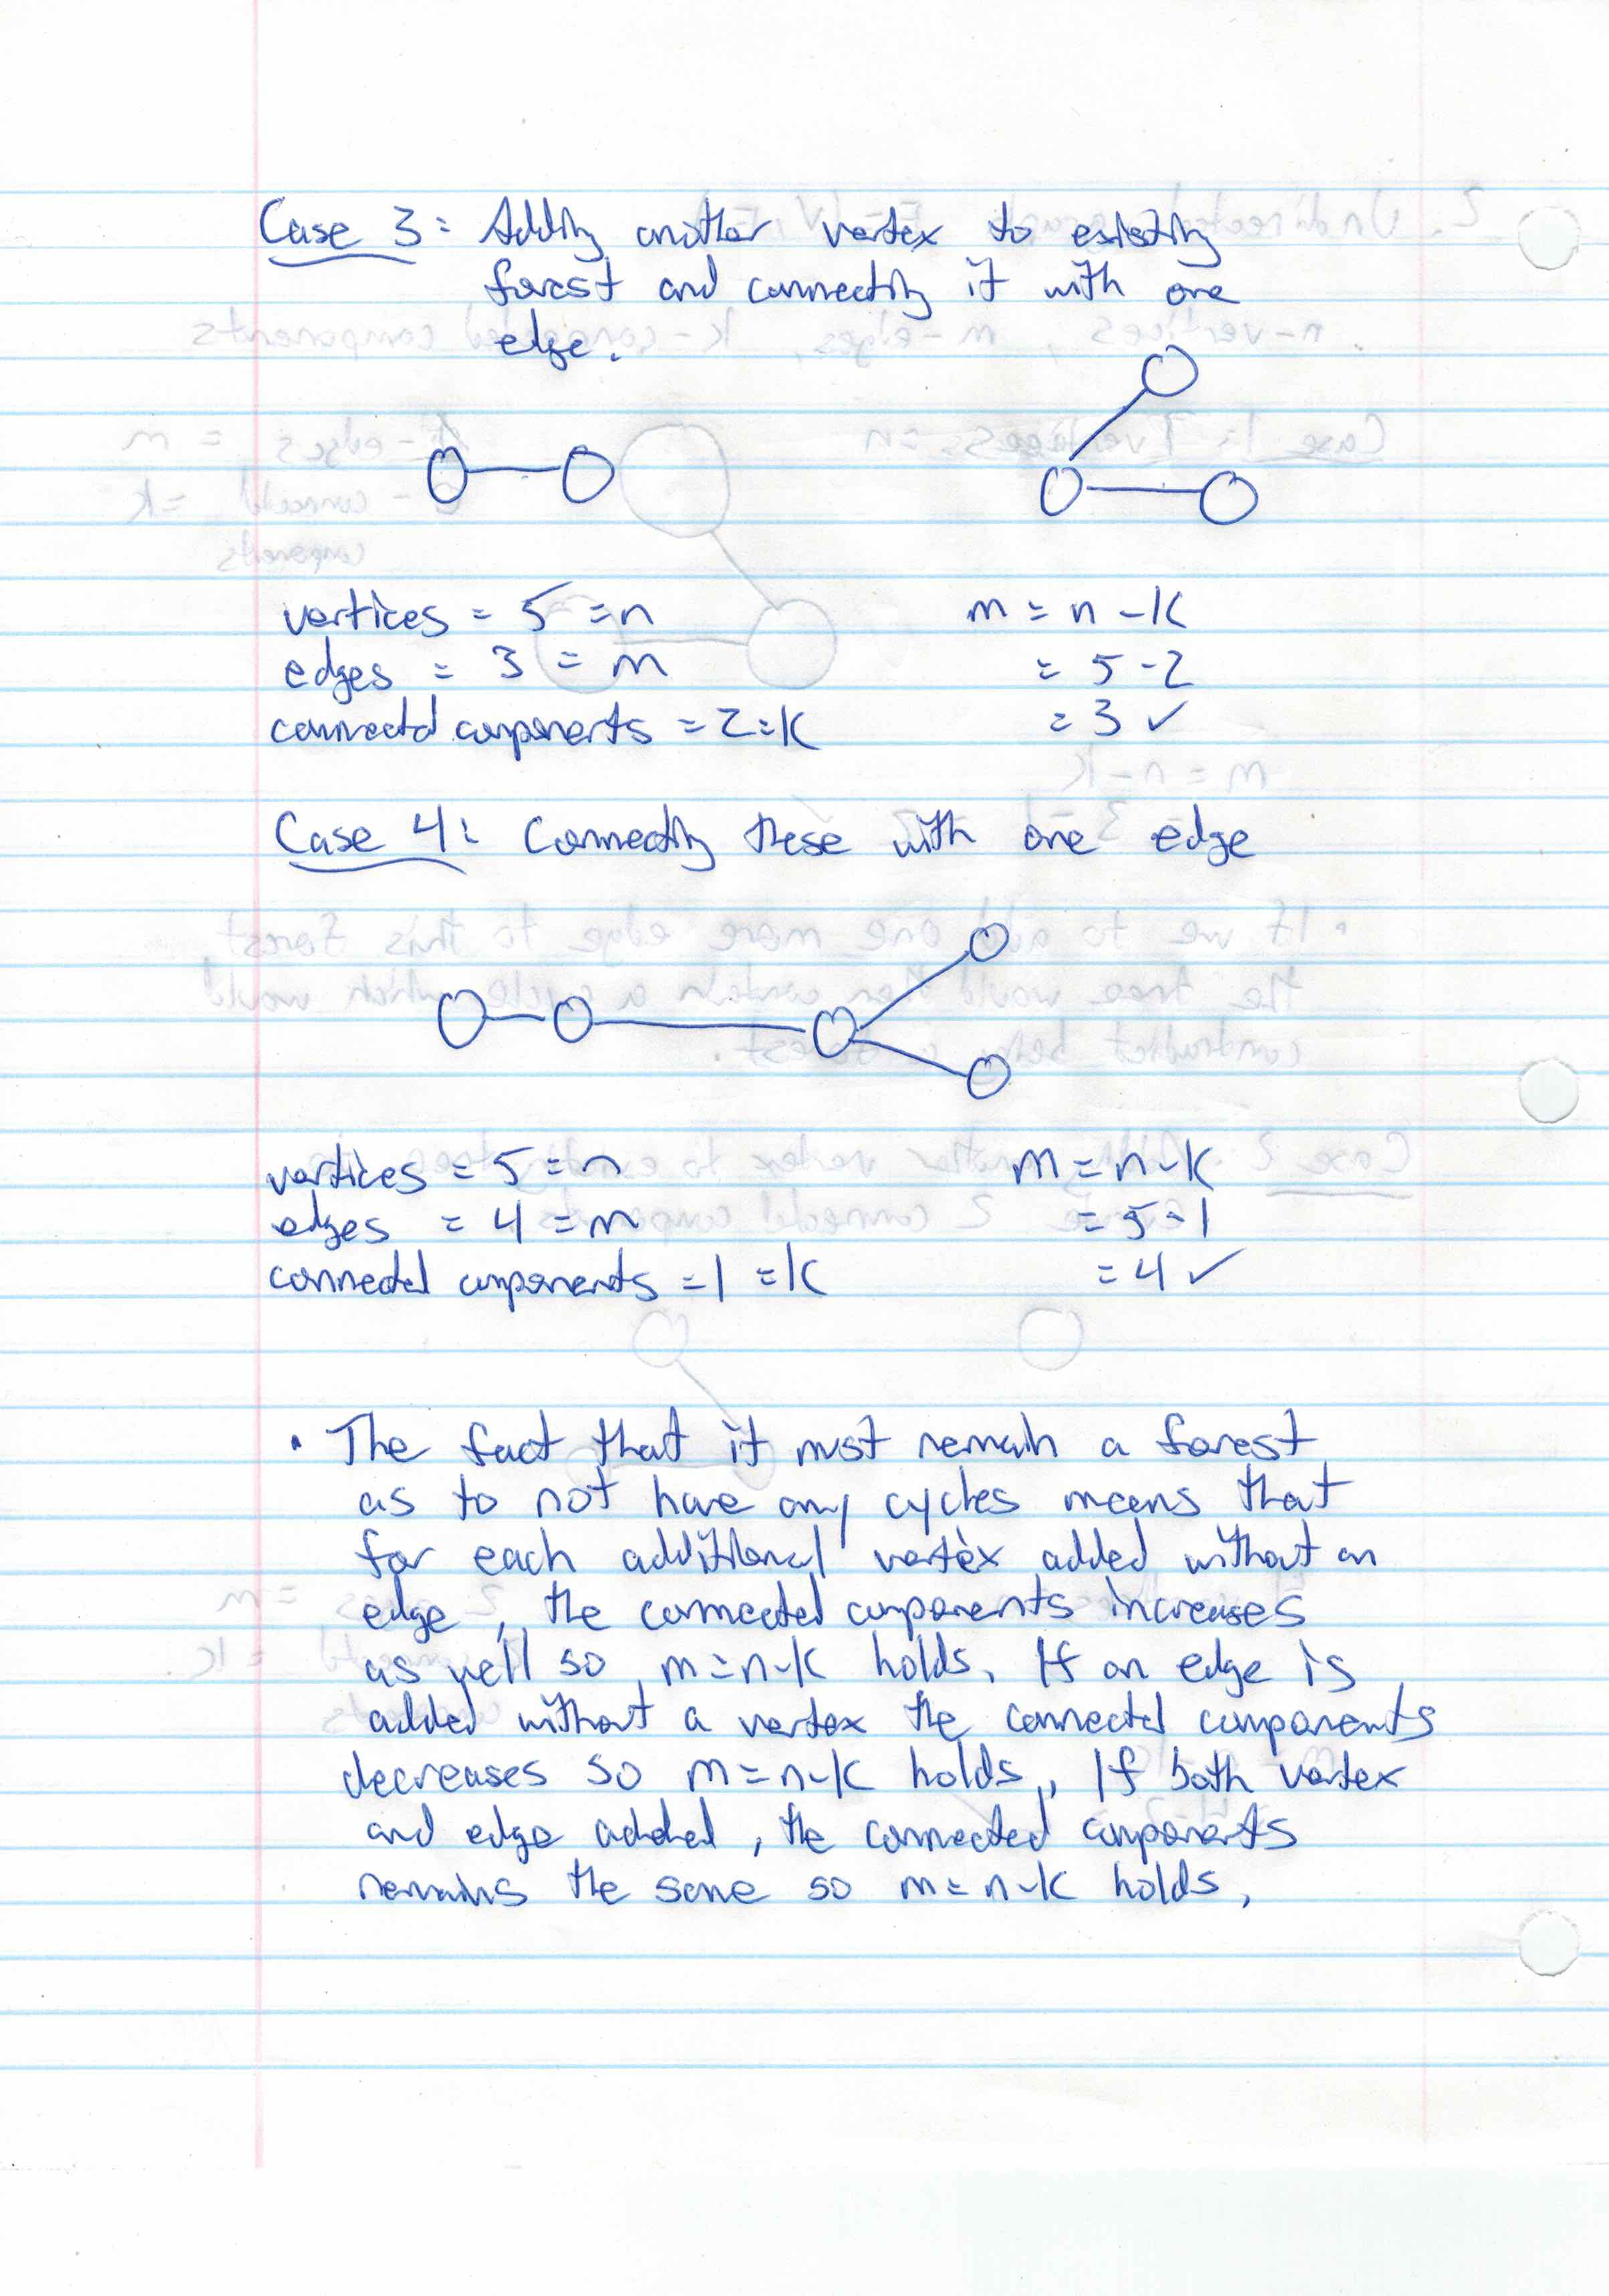 Case 3: Adding another vertex to existing
forest and connecting it with one
edge.
vertices = 5 = n
m = n - K
edges = 3 = m
= 5 - 2
connected components = 2 = K
= 3 ✓
Case 4: Connecting these with one edge
vertices = 5 = n
m = n - K
edges = 4 = m
= 5 - 1
connected components = 1 = K
= 4 ✓
• The fact that it must remain a forest
as to not have any cycles means that
for each additional vertex added without an
edge, the connected components increases
as well so m = n - K holds. If an edge is
added without a vertex the connected components
decreases so m = n - K holds. If both vertex
and edge added, the connected components
remains the same so m = n - K holds.